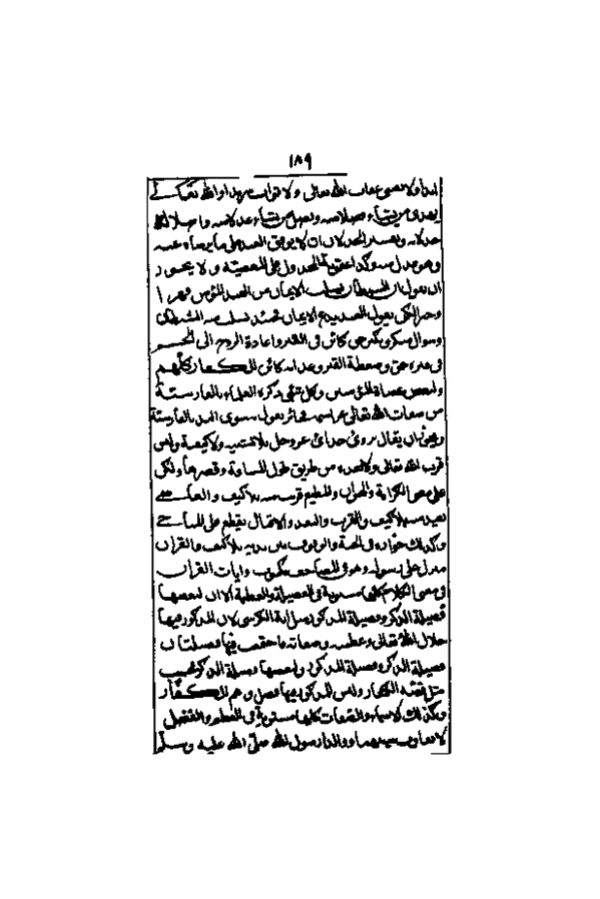 ١٨٩
ابدا ولا يفنى عقاب الله تعالى ولا ثوابه سرمدا والله تعالى
يهدي من يشاء فضلا منه ويضل من يشاء عدلا منه واضلاله
خذلانه وتفسير الخذلان ان لا يوفق العبد على ما يرضاه عنه
وهو عدل منه وكذا عقوبة المخذول على المعصية ولا يجوز
ان نقول ان الشيطان يسلب الايمان من العبد المؤمن قهرا
وجبرا ولكن نقول العبد يدع الايمان فحينئذ يسلب منه الشيطان
وسوال منكر ونكير حق كائن في القبر واعادة الروح الى الجسد
في قبره حق وضغطة القبر وعذابه كائن للكفار كلهم
ولبعض عصاة المؤمنين وكل شئ ذكره العلماء بالفارسية
من صفات الله تعالى عز اسمه فجائز القول به سوى اليد بالفارسية
ويجوز ان يقال بروئ خدائ عز وجل بلا تشبيه ولا كيفية وليس
قرب الله تعالى ولا بعده من طريق طول المسافة وقصرها ولكن
على معنى الكرامة والهوان والمطيع قريب منه بلا كيف والعاصي
بعيد منه بلا كيف والقرب والبعد والاقبال يقع على المناجي
وكذلك جواره في الجنة والوقوف بين يديه بلا كيف والقران
منزل على رسوله وهو في المصاحف مكتوب وايات القران
في معنى الكلام كلها مستوية في الفضيلة والعظمة الا ان لبعضها
فضيلة الذكر وفضيلة المذكور مثل اية الكرسي لان المذكور فيها
جلال الله تعالى وعظمته وصفاته فاجتمعت فيها فضيلتان
فضيلة الذكر وفضيلة المذكور ولبعضها فضيلة الذكر فحسب
مثل قصة الكفار وليس للمذكور فيها فضل وهم الكفار
وكذلك الاسماء والصفات كلها مستوية في العظم والفضل
لا تفاوت بينهما ووالدا رسول الله صلى الله عليه وسلم